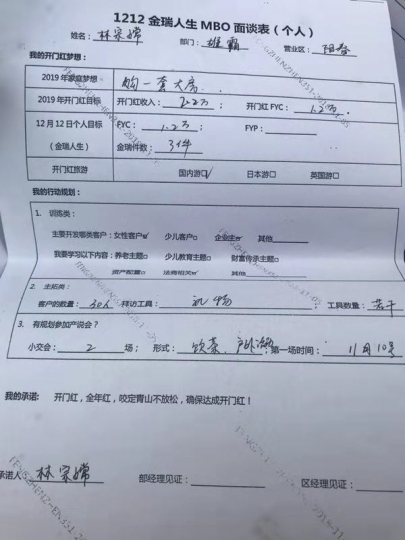 1212 金瑞人生 MBO 面谈表（个人）
姓名：林宗嫦 部门：雄霸 营业区：阳春
我的开门红梦想：
2019 年家庭梦想 购一套大房
2019 年开门红目标 开门红收入：2.2万； 开门红 FYC：1.2万
12 月 12 日个人目标（金瑞人生） FYC：1.2万； FYP：
金瑞件数：3件
开门红旅游 国内游☑ 日本游□ 英国游□
我的行动规划：
1. 训练类：
主要开发哪类客户：女性客户☑ 少儿客户□ 企业主☑ 其他
我要学习以下内容：养老主题□ 少儿教育主题□ 财富传承主题□
资产配置□ 法商相关☑ 其他
2. 主拓类：
客户的数量：30人 拜访工具：礼物 工具数量：若干
3. 有规划参加产说会？
小交会：2 场； 形式：饮茶、户外 ；第一场时间：11月10号
我的承诺： 开门红，全年红，咬定青山不放松，确保达成开门红！
承诺人 林宗嫦 部经理见证： 区经理见证：